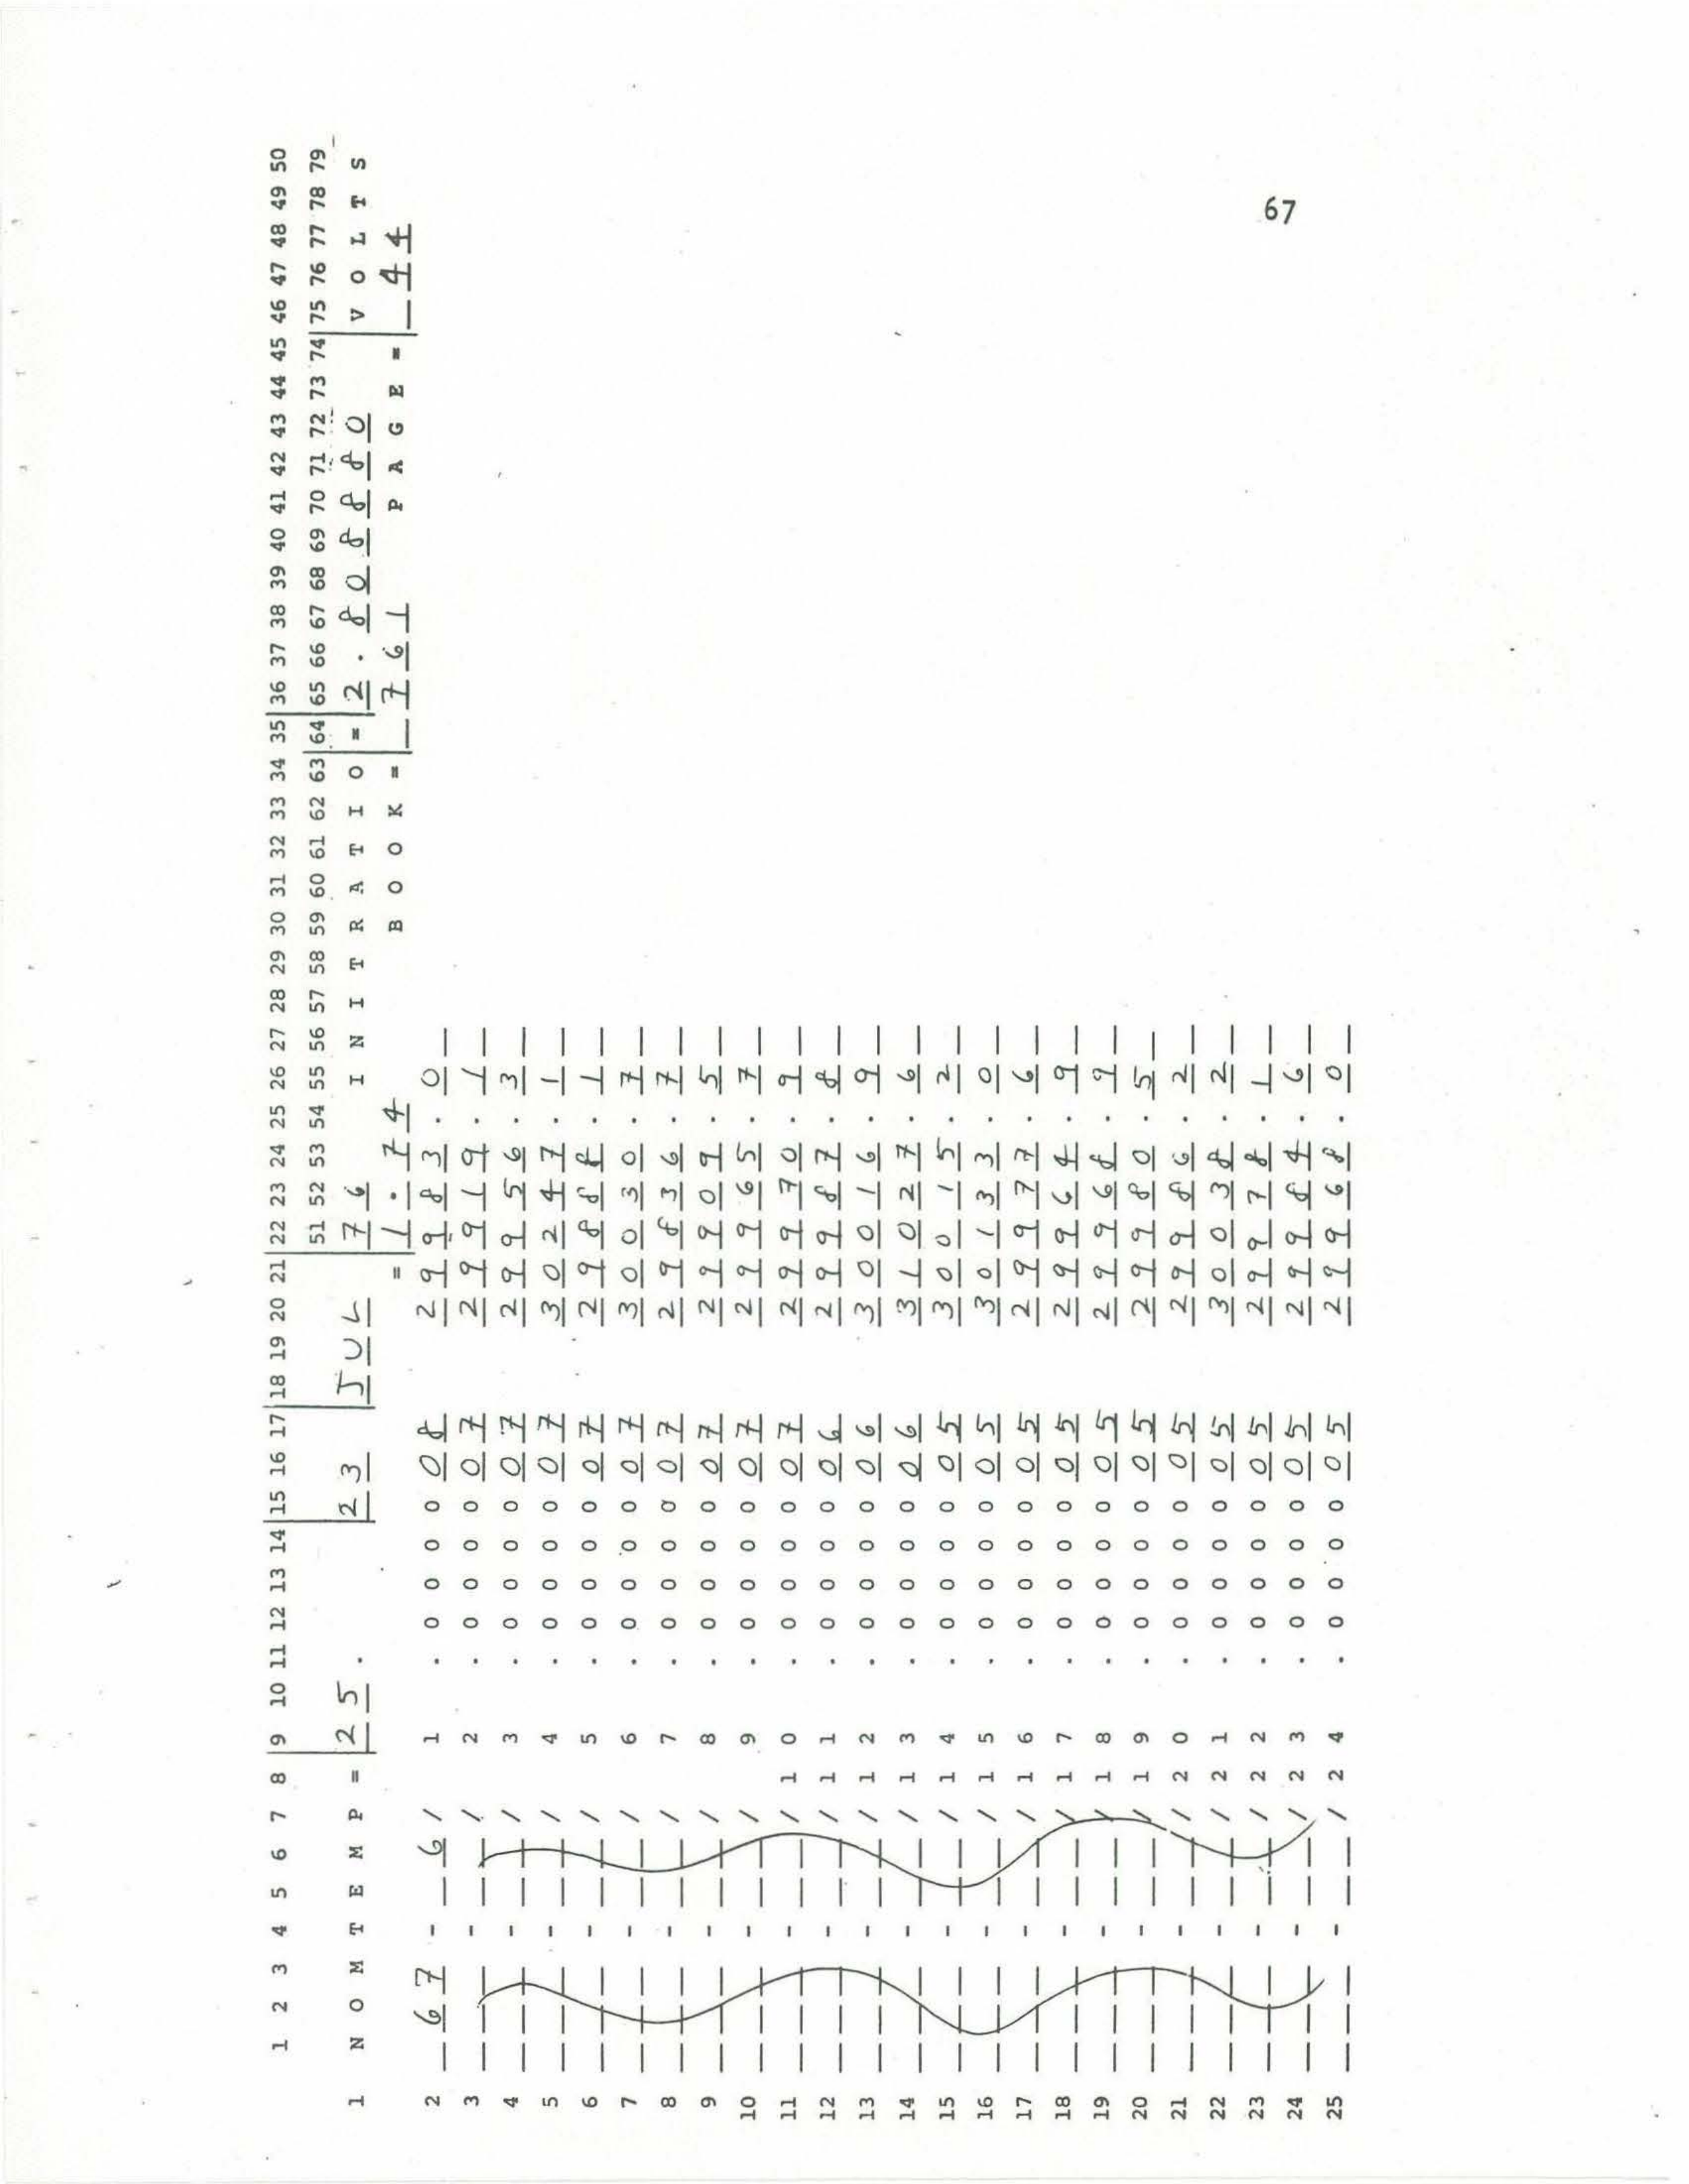 67
1 2 3 4 5 6 7 8 | 9 10 11 12 13 14 | 15 16 17 | 18 19 20 21 | 22 23 24 25 26 27 28 29 30 31 32 33 34 35 | 36 37 38 39 40 41 42 43 44 45 46 47 48 49 50
51 52 53 54 55 56 57 58 59 60 61 62 63 | 64 65 66 67 68 69 70 71 72 73 74 | 75 76 77 78 79
1 N O M T E M P = 2 5 . 2 3 J U L 7 6 I N I T R A T I O = 2 . 8 0 8 8 8 0 V O L T S
= 1 . 7 4 B O O K = _ 7 6 1 P A G E = _ 4 4
2 _ 6 7 - _ 6 / 1 . 0 0 0 0 0 8 2 9 9 8 3 . 0 _
3 _ _ _ - _ _ / 2 . 0 0 0 0 0 7 2 9 9 1 9 . 1 _
4 _ _ _ - _ _ / 3 . 0 0 0 0 0 7 2 9 9 5 6 . 3 _
5 _ _ _ - _ _ / 4 . 0 0 0 0 0 7 3 0 2 4 7 . 1 _
6 _ _ _ - _ _ / 5 . 0 0 0 0 0 7 2 9 8 8 8 . 1 _
7 _ _ _ - _ _ / 6 . 0 0 0 0 0 7 3 0 0 3 0 . 7 _
8 _ _ _ - _ _ / 7 . 0 0 0 0 0 7 2 9 8 3 6 . 7 _
9 _ _ _ - _ _ / 8 . 0 0 0 0 0 7 2 9 9 0 9 . 5 _
10 _ _ _ - _ _ / 9 . 0 0 0 0 0 7 2 9 9 6 5 . 7 _
11 _ _ _ - _ _ / 1 0 . 0 0 0 0 0 7 2 9 9 7 0 . 9 _
12 _ _ _ - _ _ / 1 1 . 0 0 0 0 0 6 2 9 9 8 7 . 8 _
13 _ _ _ - _ _ / 1 2 . 0 0 0 0 0 6 3 0 0 1 6 . 9 _
14 _ _ _ - _ _ / 1 3 . 0 0 0 0 0 6 3 1 0 2 7 . 6 _
15 _ _ _ - _ _ / 1 4 . 0 0 0 0 0 5 3 0 0 1 5 . 2 _
16 _ _ _ - _ _ / 1 5 . 0 0 0 0 0 5 3 0 1 3 3 . 0 _
17 _ _ _ - _ _ / 1 6 . 0 0 0 0 0 5 2 9 9 7 7 . 6 _
18 _ _ _ - _ _ / 1 7 . 0 0 0 0 0 5 2 9 9 6 4 . 9 _
19 _ _ _ - _ _ / 1 8 . 0 0 0 0 0 5 2 9 9 6 8 . 9 _
20 _ _ _ - _ _ / 1 9 . 0 0 0 0 0 5 2 9 9 8 0 . 5 _
21 _ _ _ - _ _ / 2 0 . 0 0 0 0 0 5 2 9 9 8 6 . 2 _
22 _ _ _ - _ _ / 2 1 . 0 0 0 0 0 5 3 0 0 3 8 . 2 _
23 _ _ _ - _ _ / 2 2 . 0 0 0 0 0 5 2 9 9 7 8 . 1 _
24 _ _ _ - _ _ / 2 3 . 0 0 0 0 0 5 2 9 9 8 4 . 6 _
25 _ _ _ - _ _ / 2 4 . 0 0 0 0 0 5 2 9 9 6 8 . 0 _